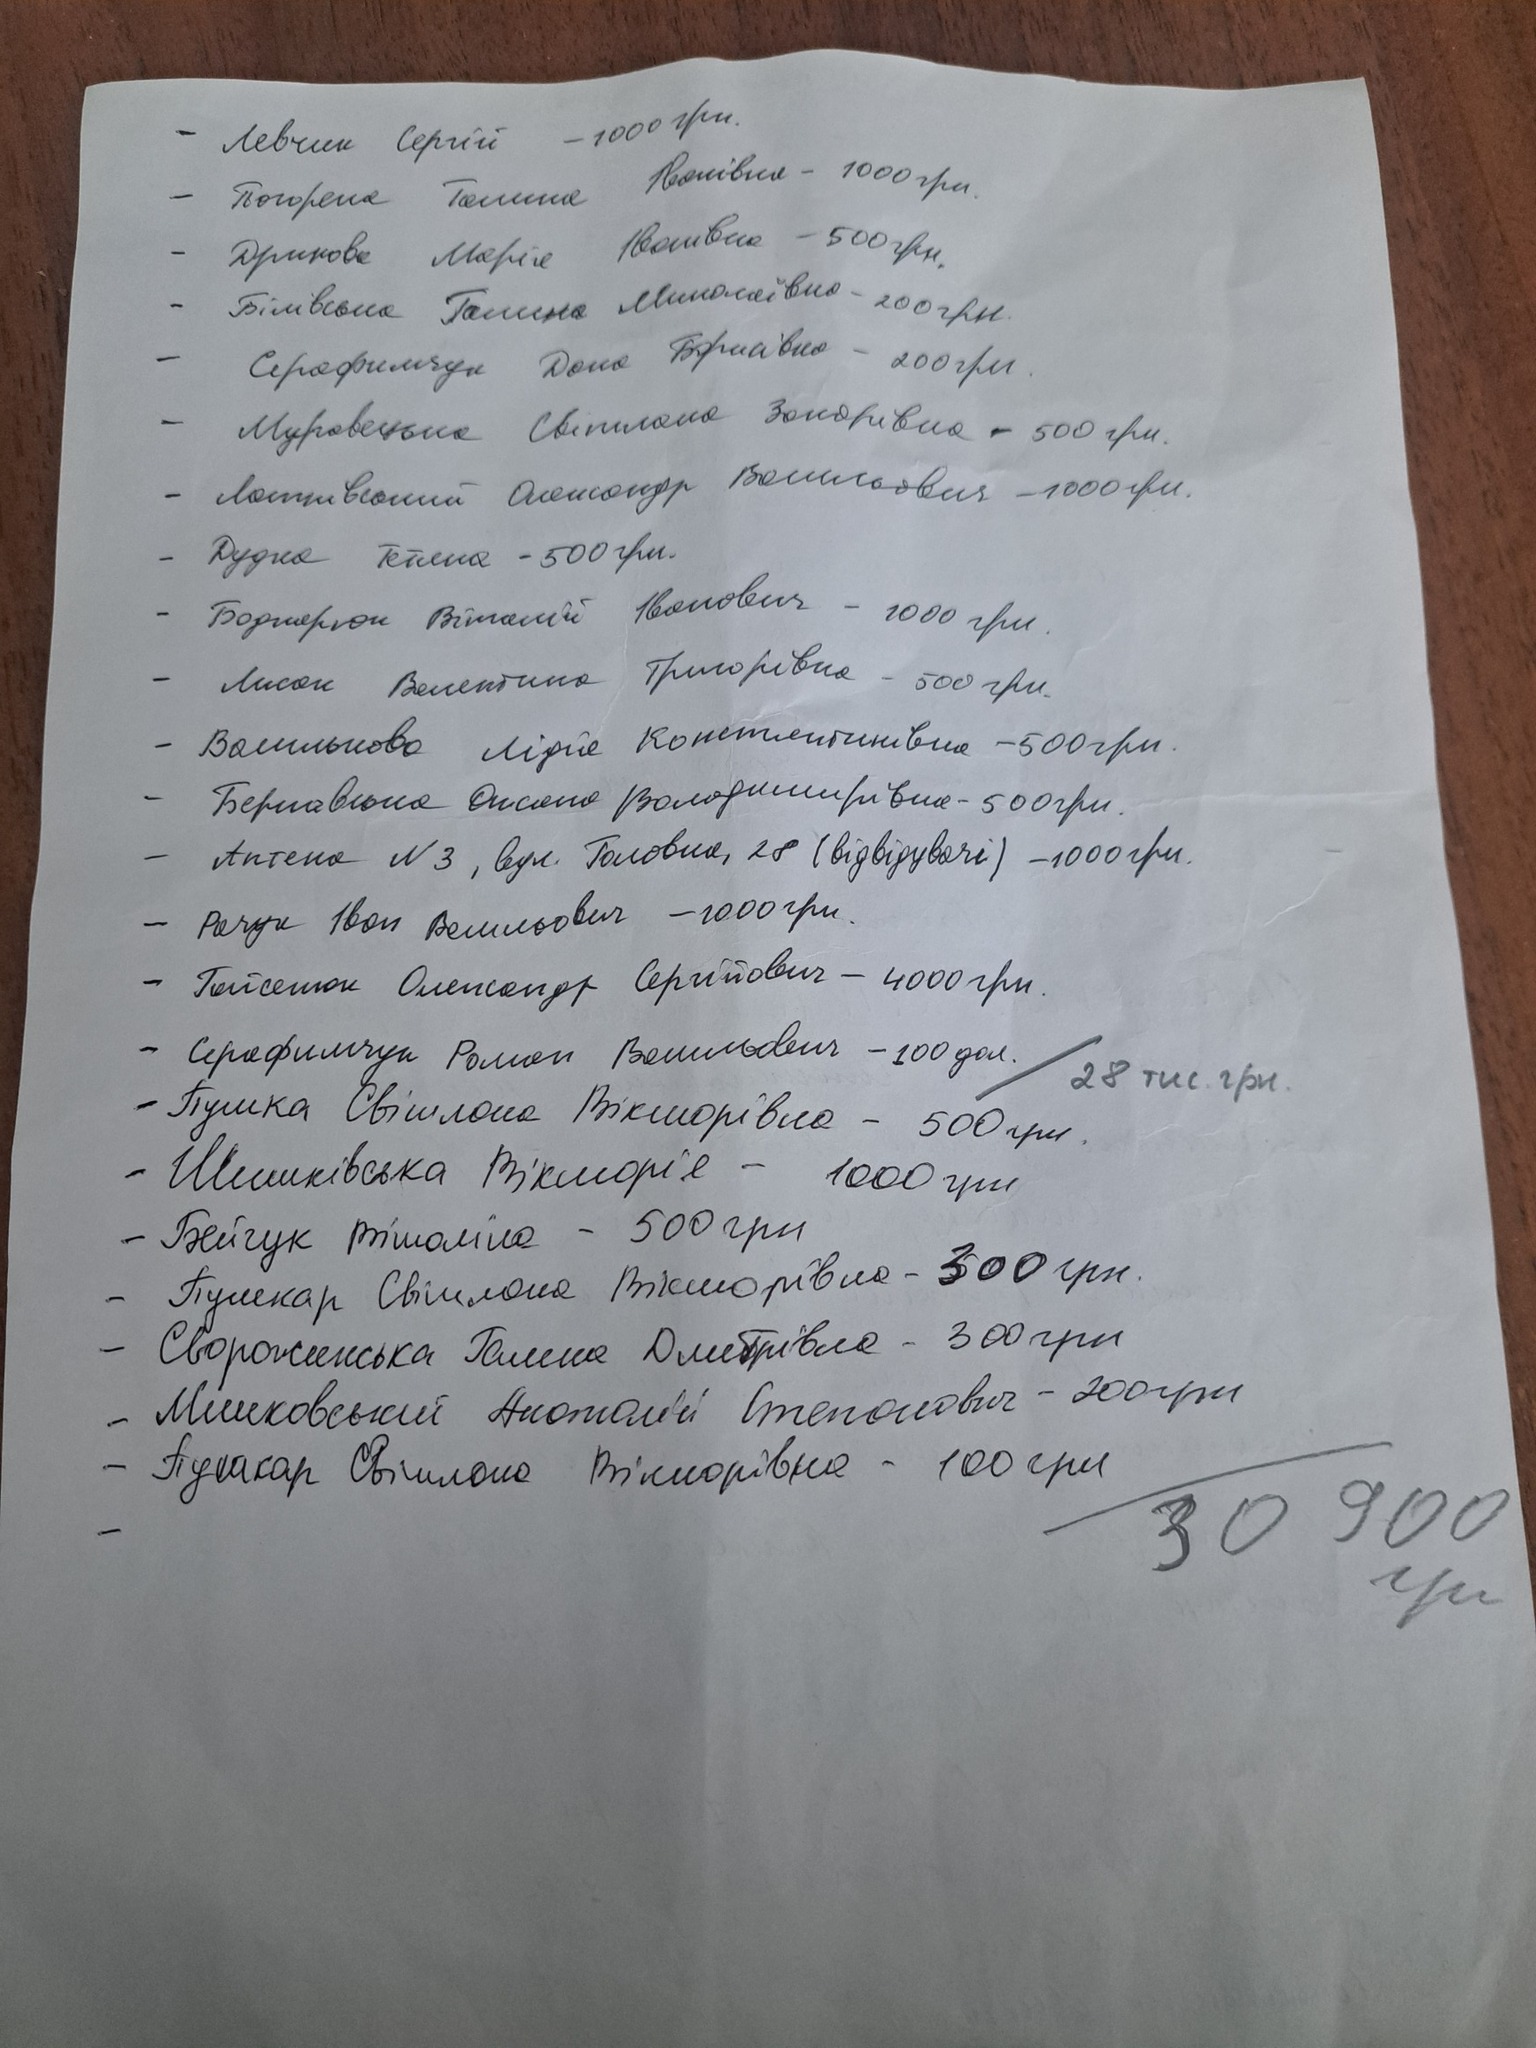 - Левчик Сергій - 1000 грн.
- Погорела Галина Іванівна - 1000 грн.
- Марія Іванівна - 500 грн.
- Білівська Галина Миколаївна - 200 грн.
- Серафимчук Дана Борисівна - 200 грн.
- Муравецька Світлана Захарівна - 500 грн.
- Олександр Васильович - 1000 грн.
- Дудка Тетяна - 500 грн.
- Боднарюк Віталій Іванович - 1000 грн.
- Лисак Валентина Григорівна - 500 грн.
- Василькова Лідія Константинівна - 500 грн.
- Бернавська Оксана Володимирівна - 500 грн.
- Аптека N 3, вул. Головна, 28 (відвідувачі) - 1000 грн.
- Рачук Іван Васильович - 1000 грн.
- Гайсенюк Олександр Сергійович - 4000 грн.
- Серафимчук Роман Васильович - 100 дол. / 28 тис. грн.
- Пушка Світлана Вікторівна - 500 грн.
- Шишківська Вікторія - 1000 грн
- Бейчук Віталіна - 500 грн
- Пушкар Світлана Вікторівна - 300 грн.
- Сворожинська Галина Дмитрівна - 300 грн
- Мишковський Анатолій Степанович - 200 грн
- Пушкар Світлана Вікторівна - 100 грн
-
30 900
грн